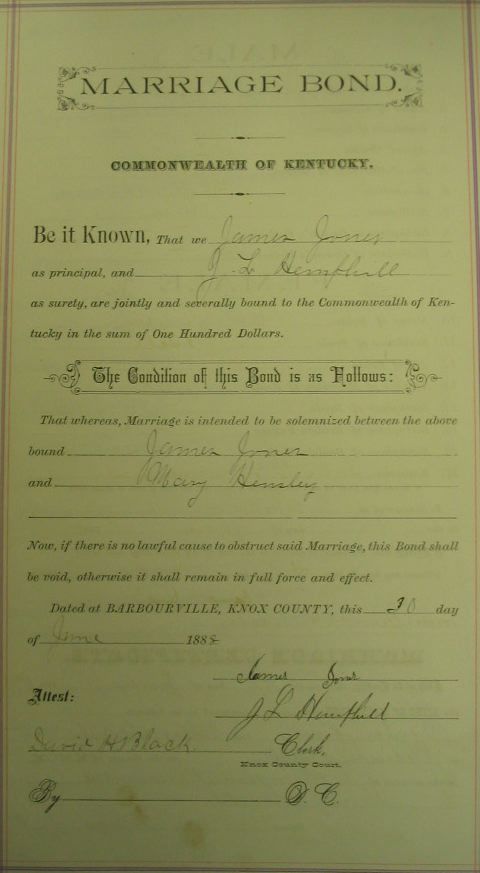 MARRIAGE BOND.
COMMONWEALTH OF KENTUCKY.
Be it Known, That we James Jones
as principal, and J. L. Hemphill
as surety, are jointly and severally bound to the Commonwealth of Ken-
tucky in the sum of One Hundred Dollars.
The Condition of this Bond is as Follows:
That whereas, Marriage is intended to be solemnized between the above
bound James Jones
and Mary Hensley
Now, if there is no lawful cause to obstruct said Marriage, this Bond shall
be void, otherwise it shall remain in full force and effect.
Dated at BARBOURVILLE, KNOX COUNTY, this 30 day
of June 1888
James Jones
Attest:
J L Hemphill
David H Black Clerk,
Knox County Court.
By D. C.